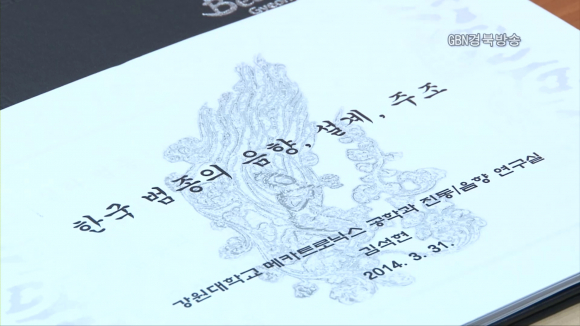 GBN경북방송
한국 범종의 음향, 설계, 주조
강원대학교 메카트로닉스 공학과 진동/음향 연구실
김석현
2014. 3. 31.